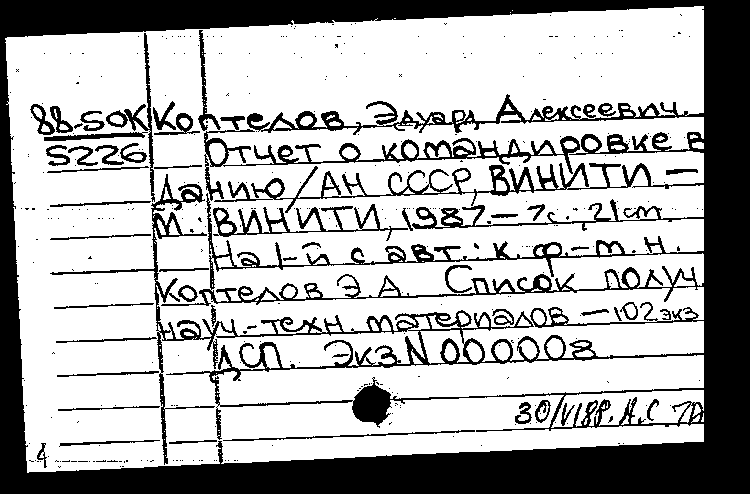 88-5ОК Коптелов, Эдуард Алексеевич.
5226 Отчет о командировке в
Данию / АН СССР, ВИНИТИ. —
М.: ВИНИТИ, 1987. — 7 с.; 21 cm.
На 1-й с. авт.: к. ф.-т. н.
Коптелов Э. А. Список получ.
науч.-техн. материалов — 102 экз
ДСП. Экз. N 000008.
30/VI 88. А.С.
4